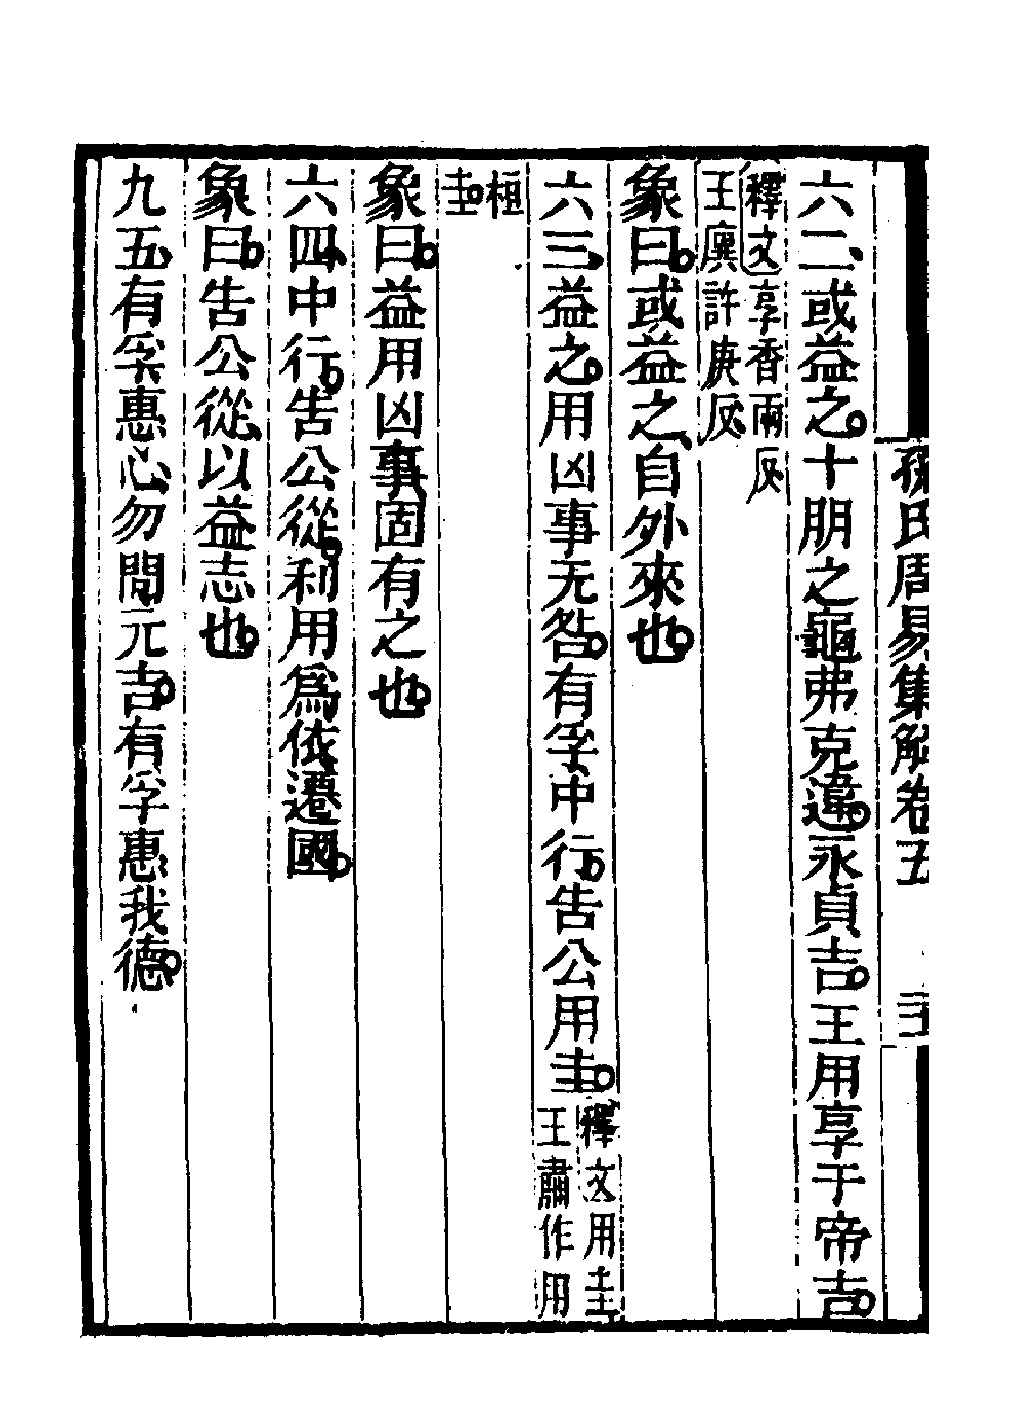 孫氏周易集解卷五
六二、或益之。十朋之龜弗克違。永貞吉。王用享于帝吉。
釋文享香兩反
王廙許庚反
象曰。或益之、自外來也。
六三、益之。用凶事无咎。有孚中行。告公用圭。
釋文用圭
王肅作用
桓
圭。
象曰。益用凶事固有之也。
六四、中行。告公從。利用爲依遷國。
象曰。告公從、以益志也。
九五、有孚惠心、勿問元吉。有孚惠我德。